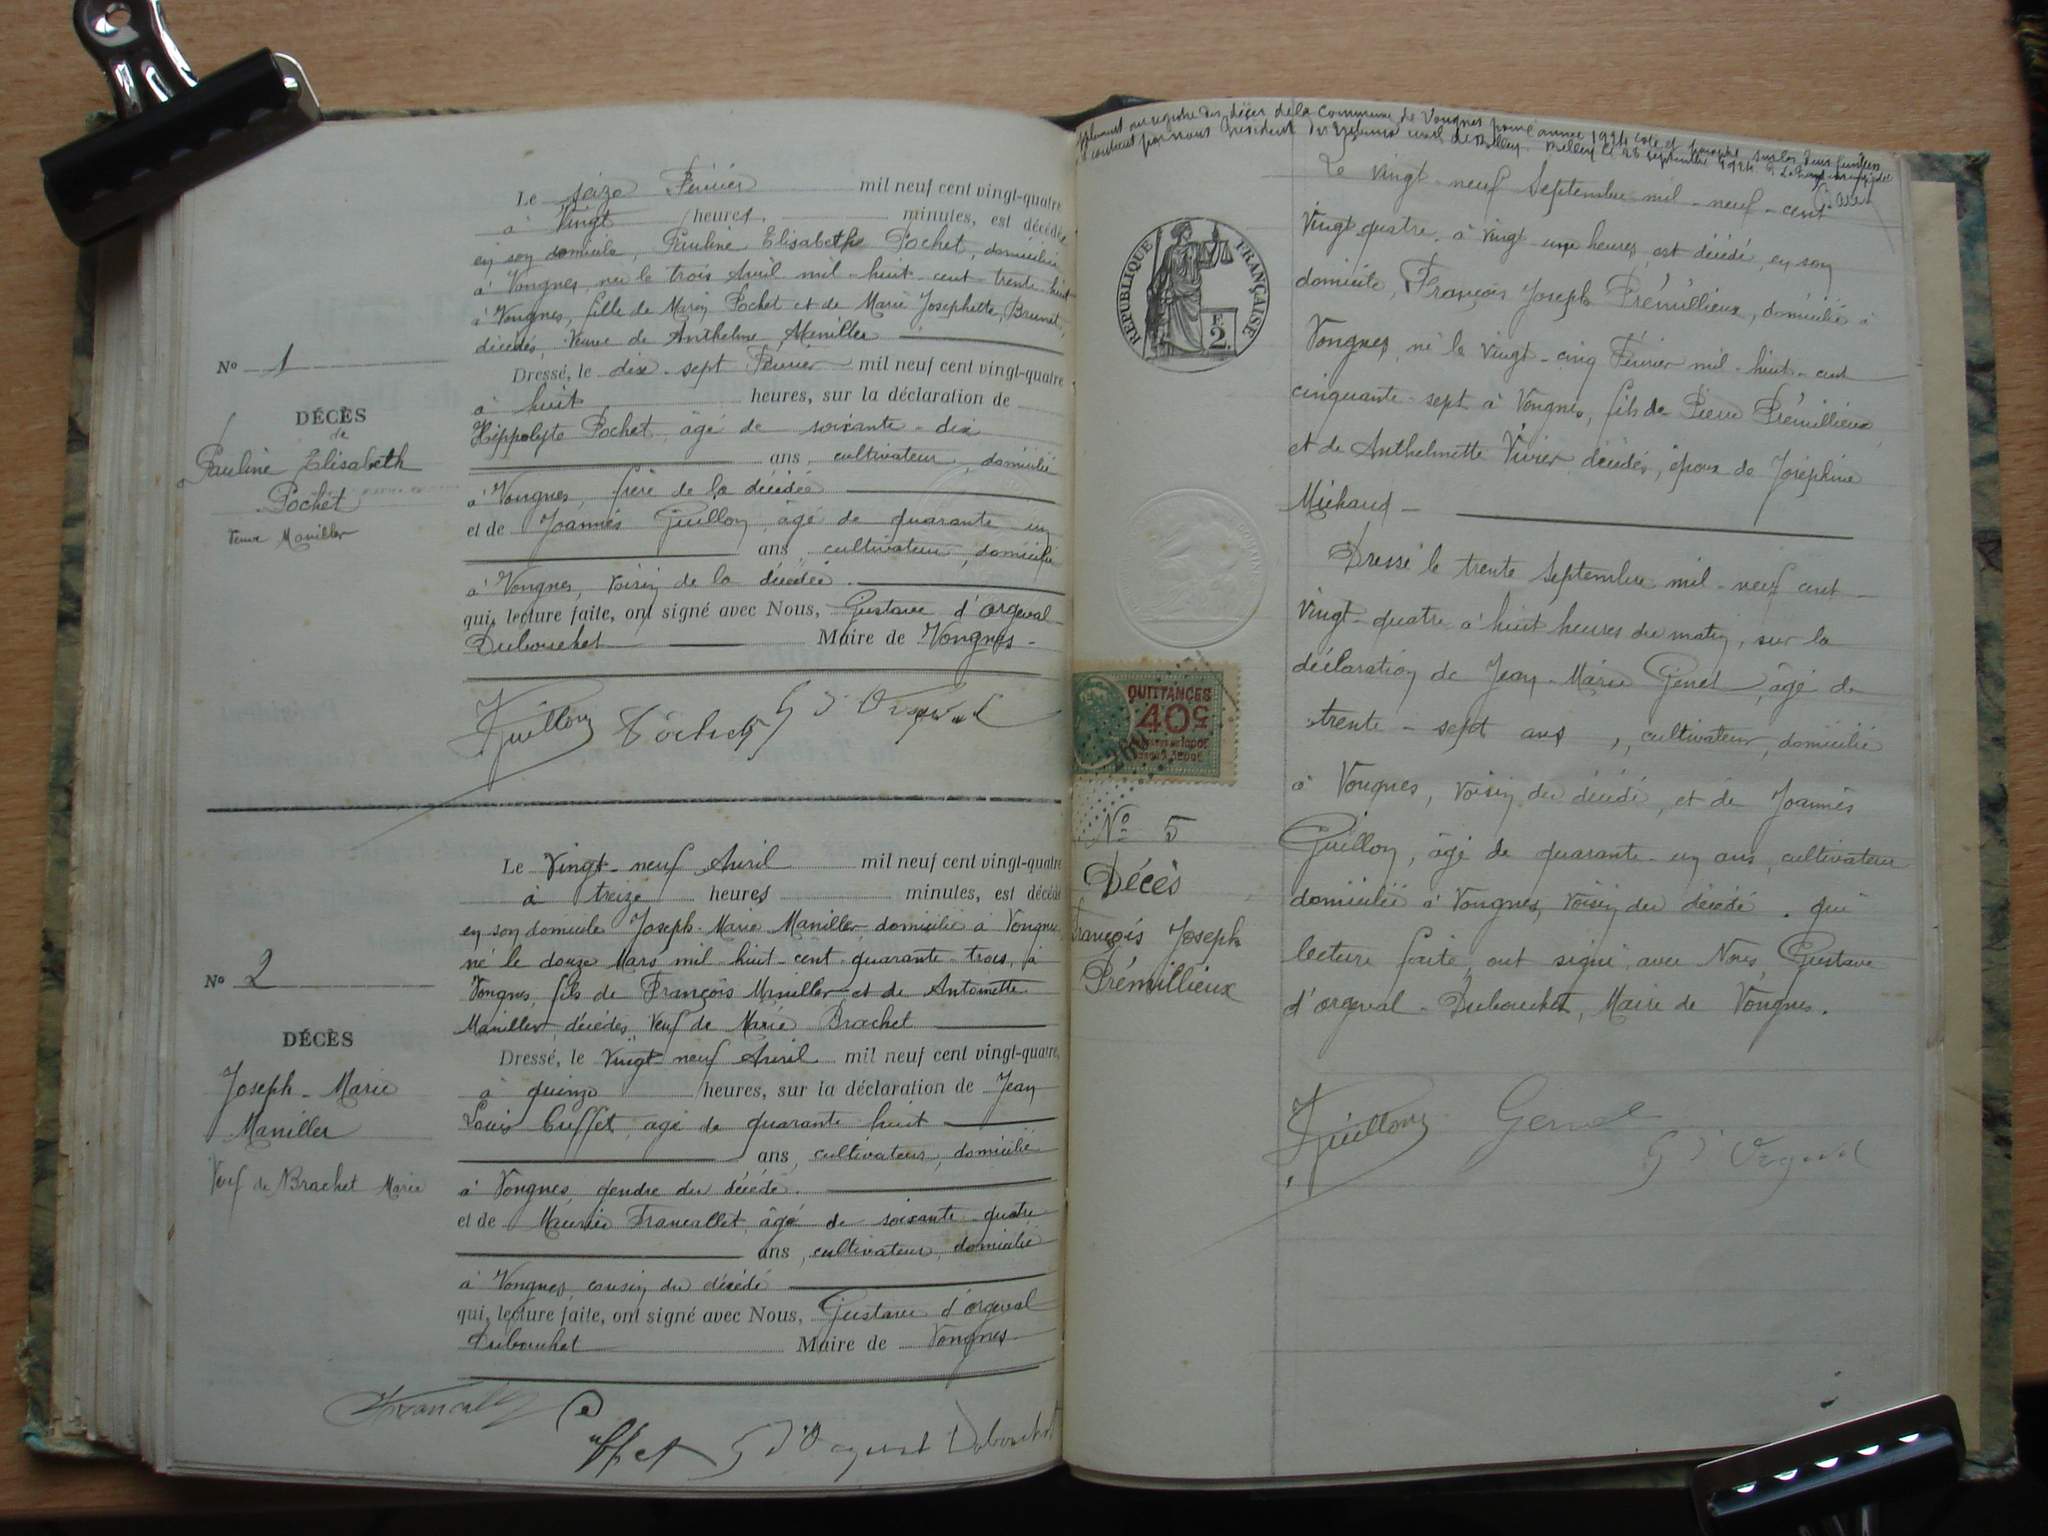 Le seize Février mil neuf cent vingt-quatre
à Vingt heures, minutes, est décédée
en son domicile, Pauline Elisabethe Pochet, domiciliée
à Vongnes, née le trois Avril mil-huit-cent-trente-huit
à Vongnes, fille de Marin Pochet et de Marie Josephette, Brunet,
décédés, Veuve de Anthelme, Maniller
Dressé, le dix-sept Février mil neuf cent vingt-quatre
à huit heures, sur la déclaration de
Hippolyte Pochet, âgé de soixante-dix
ans, cultivateur, domicilié
à Vongnes, frère de la décédée
et de Joannès Guillon, âgé de quarante-un
ans, cultivateur, domicilié
à Vongnes, voisin de la décédée.
qui, lecture faite, ont signé avec Nous, Gustave d'orgeval
Dubouchet Maire de Vongnes-
Guillon Pochet G d'Orgeval
No 1
DÉCÈS
de
Pauline Elisabeth
Pochet
Veuve Maniller
Le Vingt-neuf Avril mil neuf cent vingt-quatre
à treize heures minutes, est décédé
en son domicile Joseph-Marie Maniller, domicilié à Vongnes
né le douze Mars mil-huit-cent-quarante-trois, à
Vongnes, fils de François Maniller et de Antoinette
Maniller, décédés, Veuf de Marie Brachet
Dressé, le Vingt-neuf Avril mil neuf cent vingt-quatre,
à quinze heures, sur la déclaration de Jean
Louis Cuffet, âgé de quarante-huit
ans, cultivateur, domicilié
à Vongnes, gendre du décédé.
et de Maurice Francallet, âgé de soixante-quatre
ans, cultivateur, domicilié
à Vongnes, cousin du décédé
qui, lecture faite, ont signé avec Nous, Gustave d'orgeval
Dubouchet Maire de Vongnes
Cuffet G d'Orgeval Dubouchet
No 2
DÉCÈS
Joseph-Marie
Maniller
Veuf de Brachet Marie
au registre des décès de la Commune de Vongnes pour l'année 1924 coté et paraphé sur les deux feuillets
par nous Président du Tribunal civil de Belley. Belley le 26 septembre 1924
Le Vingt-neuf Septembre mil-neuf-cent
Vingt-quatre à vingt-une heures, est décédé, en son
domicile, François Joseph Prémillieux, domicilié à
Vongnes, né le Vingt-cinq Février mil-huit-cent
cinquante-sept à Vongnes, fils de Pierre Prémillieux,
et de Anthelmette Vivier décédés, époux de Joséphine
Michaud-
Dressé le trente Septembre mil-neuf cent-
Vingt-quatre à huit heures du matin, sur la
déclaration de Jean-Marie Genet, âgé de
trente-sept ans, cultivateur, domicilié
à Vongnes, Voisin du décédé, et de Joannès
Guillon, âgé de quarante-un ans, cultivateur
domicilié à Vongnes, Voisin du décédé. qui
lecture faite, ont signé avec Nous, Gustave
d'orgeval-Dubouchet, Maire de Vongnes.
Guillon Genet
G d'Orgeval
RÉPUBLIQUE FRANÇAISE
F.
2.
QUITTANCES
40c
No 5
Décès
François Joseph
Prémillieux